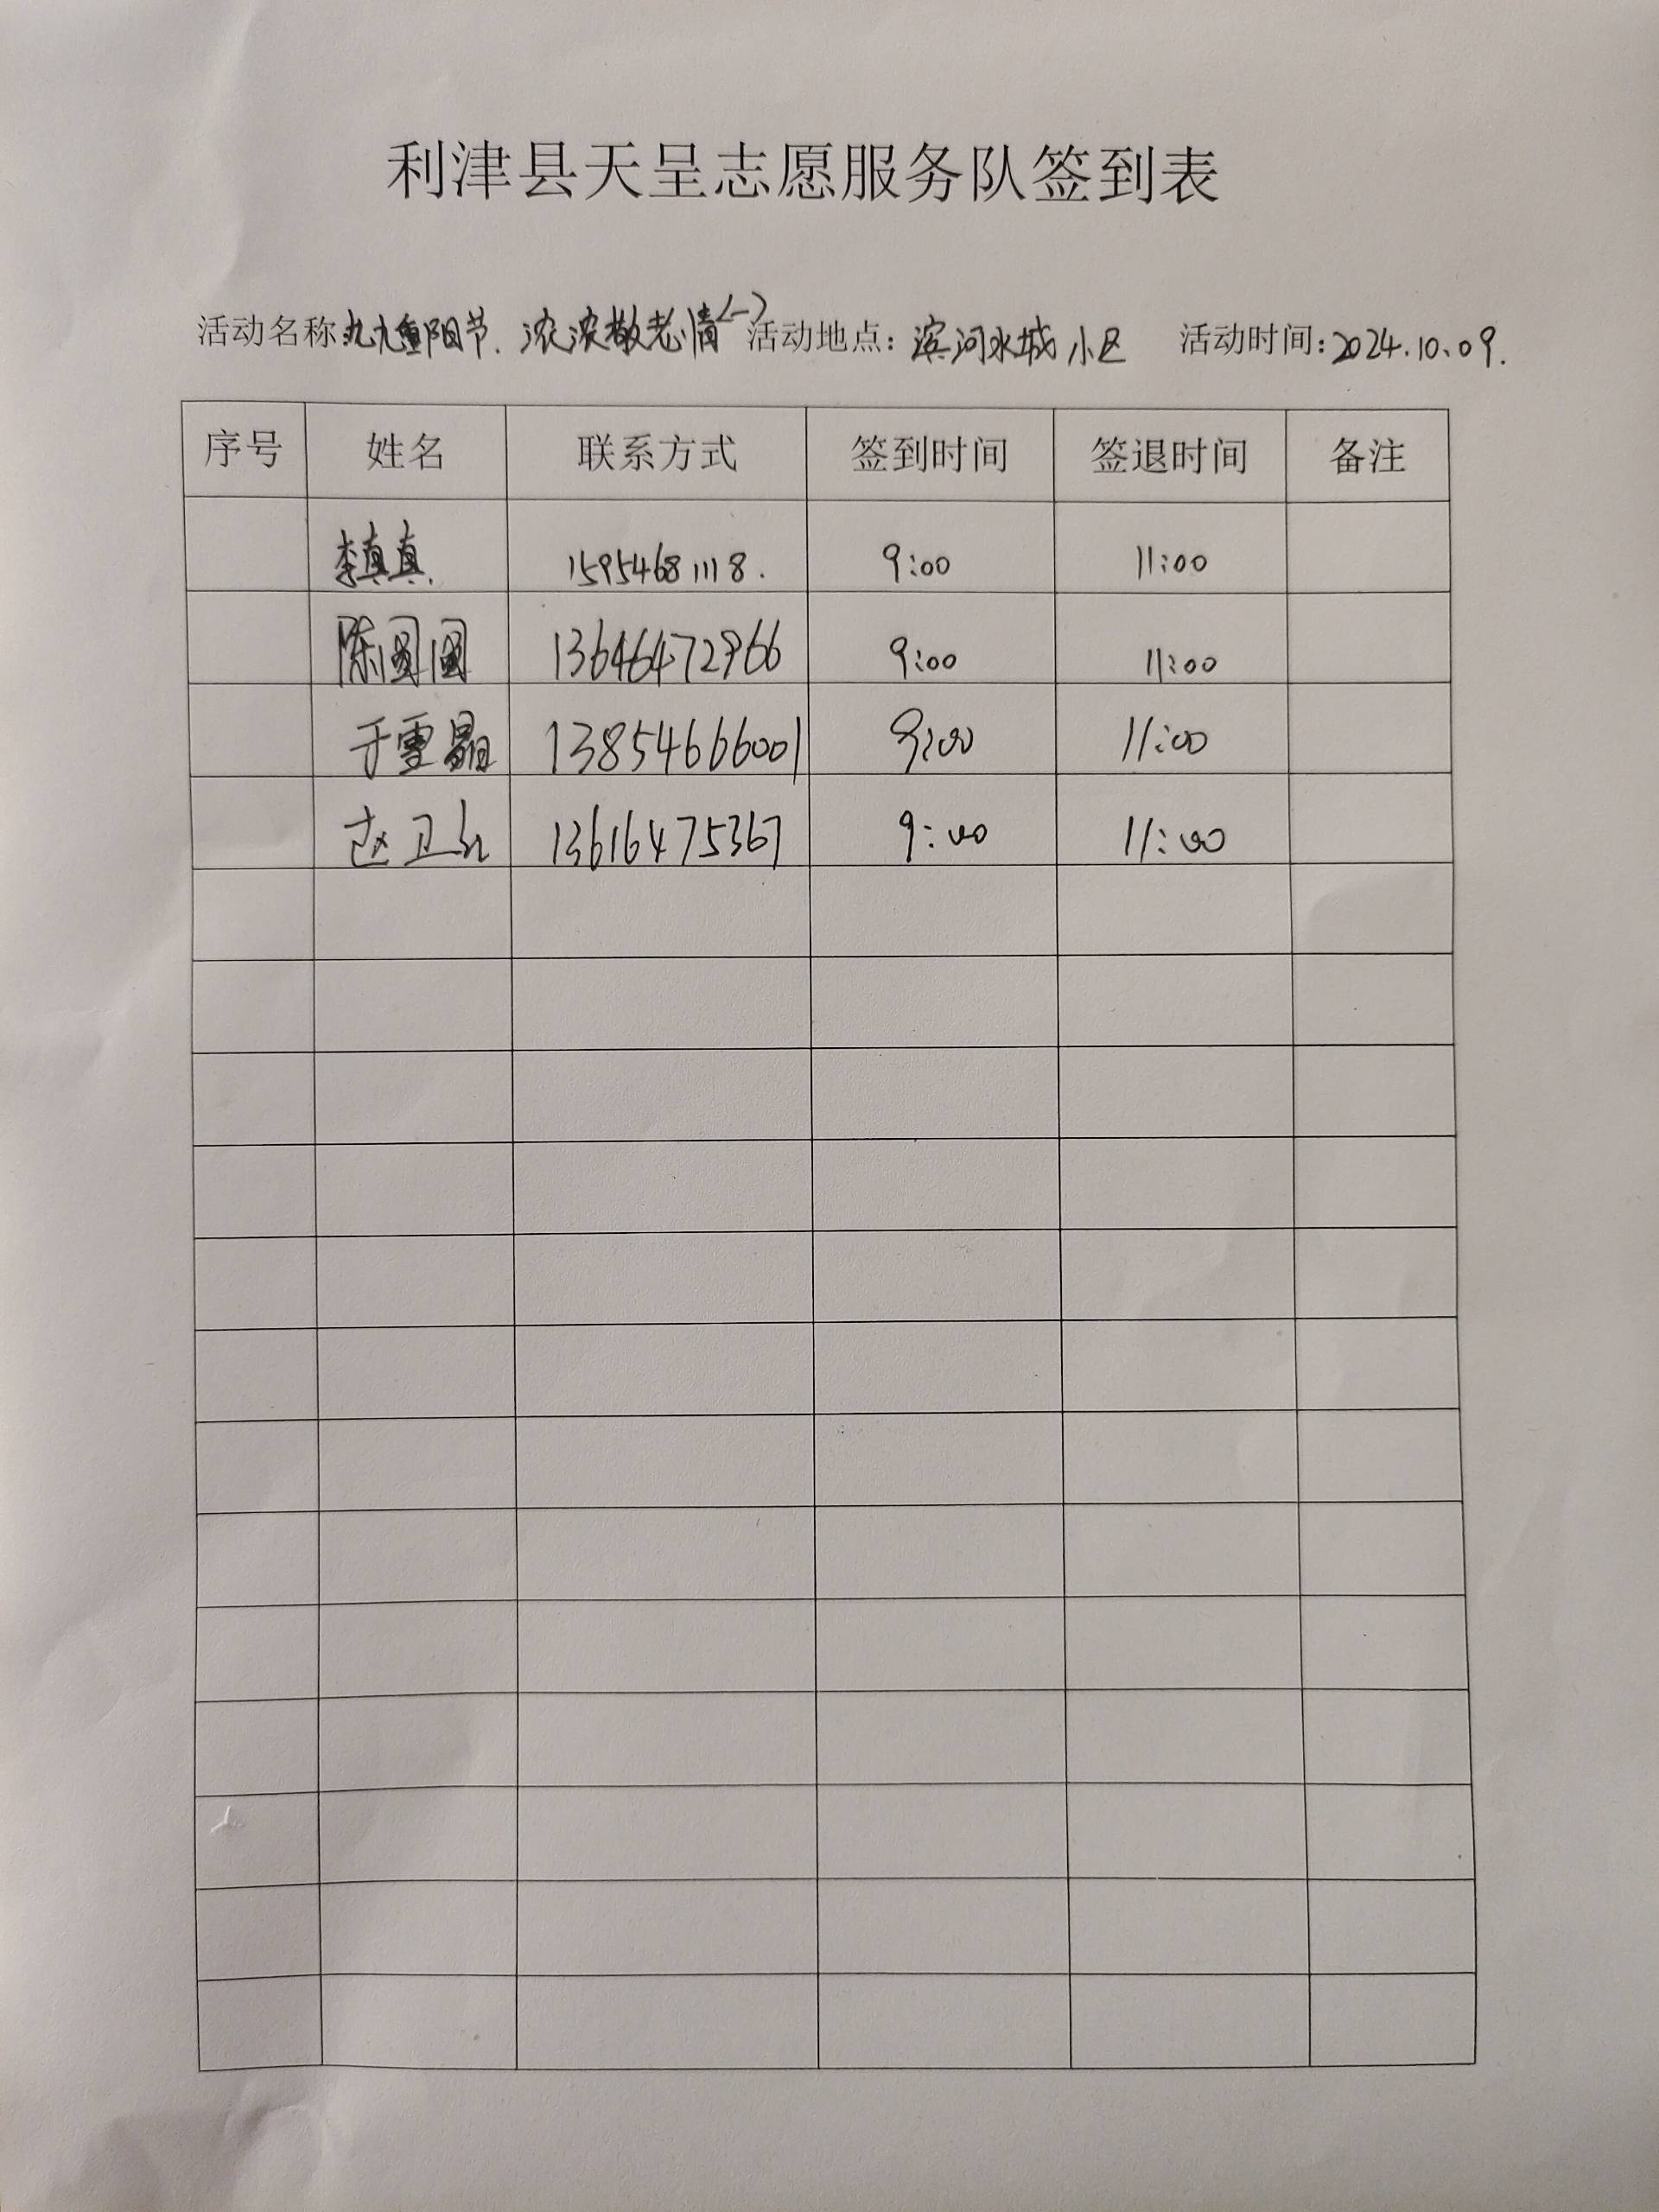 利津县天呈志愿服务队签到表
活动名称:九九重阳节.浓浓敬老情<一> 活动地点:滨河水城小区 活动时间:2024.10.09.
序号 姓名 联系方式 签到时间 签退时间 备注
李真真. 15954681118. 9:00 11:00
陈圆圆 13646472966 9:00 11:00
于雪晶 13854666001 9:00 11:00
赵卫红 13616475367 9:00 11:00